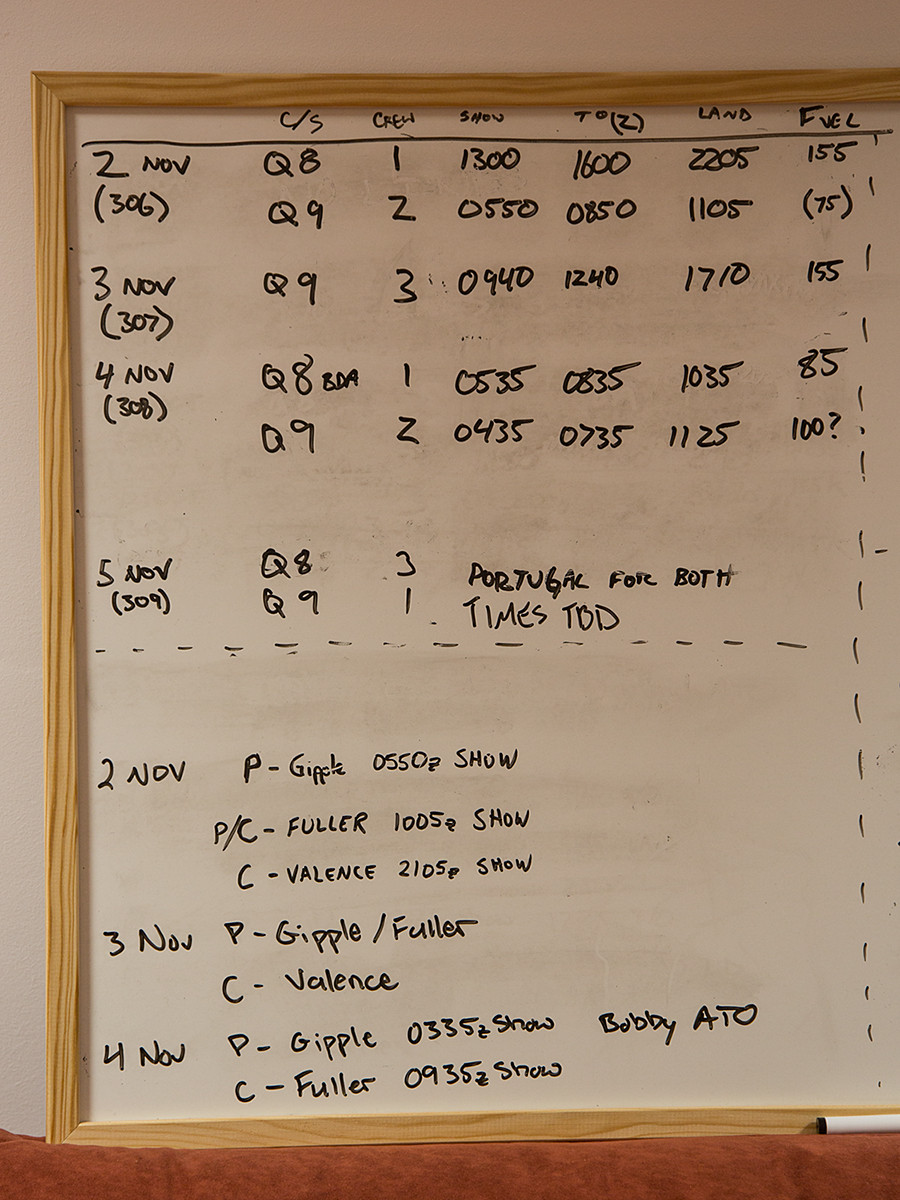 C/S CREW SHOW TO(Z) LAND FUEL
2 NOV Q8 1 1300 1600 2205 155
(306) Q9 2 0550 0850 1105 (75)
3 NOV Q9 3 0940 1240 1710 155
(307)
4 NOV Q8 BDA 1 0535 0835 1035 85
(308)
Q9 2 0435 0735 1125 100?
5 NOV Q8 3 PORTUGAL FOR BOTH
(309) Q9 1 TIMES TBD
2 NOV P - Gipple 0550z SHOW
P/C - FULLER 1005z SHOW
C - VALENCE 2105z SHOW
3 Nov P - Gipple / Fuller
C - Valence
4 Nov P - Gipple 0335z Show Bobby ATO
C - Fuller 0935z Show